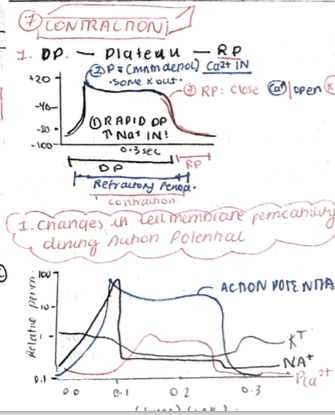 ⑦ CONTRACTION
1. DP. — Plateau — RP
② P = (mnm depol) Ca2+ IN
· SOME K OUT ·
+20
③ RP: close Ca2+ | open K
-40
① RAPID DP
↑ Na+ IN!
-80
-100
0.3 sec
DP
RP
Refractory Period.
contraction
1. Changes in cell membrane permeability
during Action Potential
100
ACTION POTENTIA
10
Relative perm.
K+
1
NA+
0.1
P(a2+
0.0 0.1 0.2 0.3